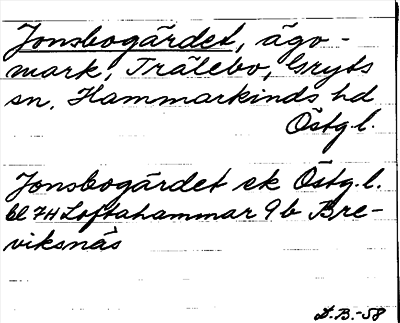 Jonsbogärdet, ägo-
mark, Trälebo, Gryts
sn, Hammarkinds hd
Östg.l.
Jonsbogärdet ek Östg.l.
bl 7H Loftahammar 9b Bre-
viksnäs
D.B.-58